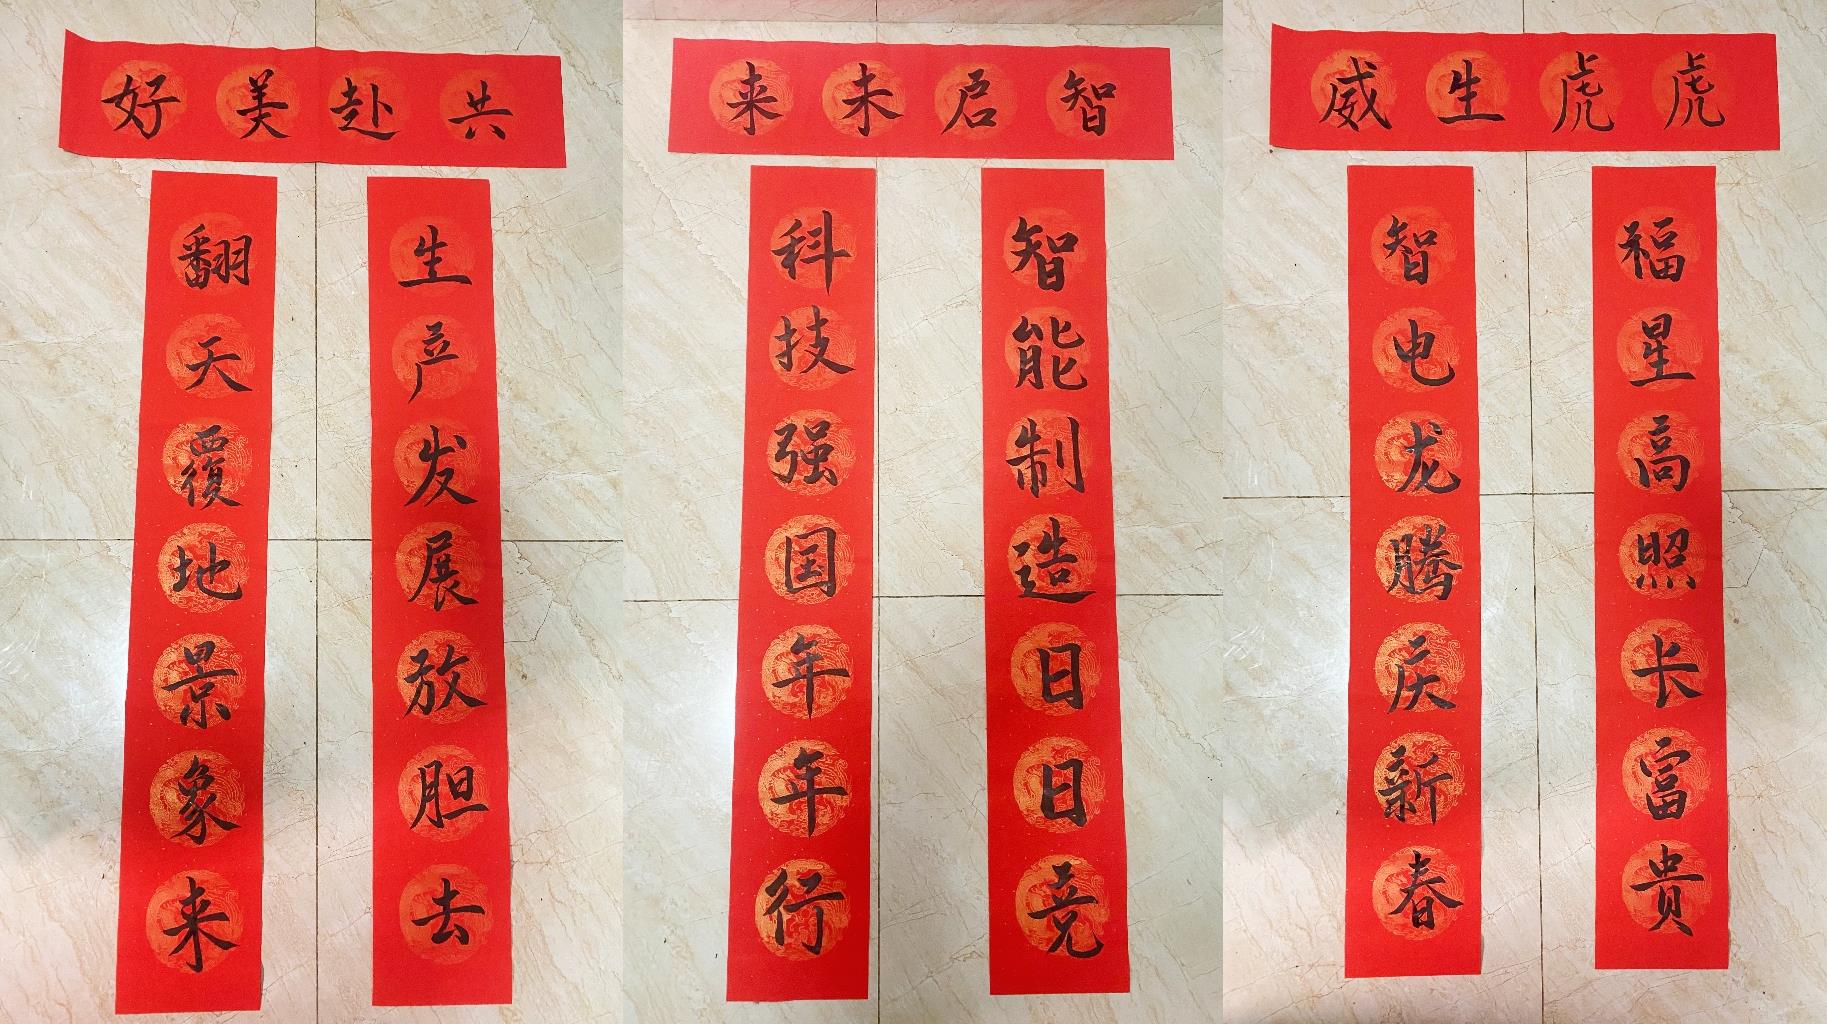 共赴美好
生产发展放胆去
翻天覆地景象来
智启未来
智能制造日日竞
科技强国年年行
虎虎生威
福星高照长富贵
智电龙腾庆新春